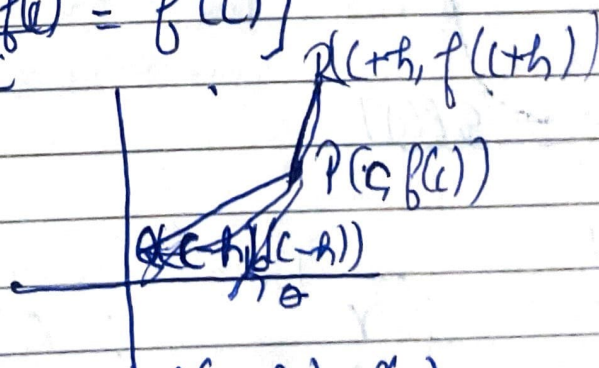 = f(c)]
R(c+h, f(c+h))
P(c, f(c))
Q(c-h, f(c-h))
θ